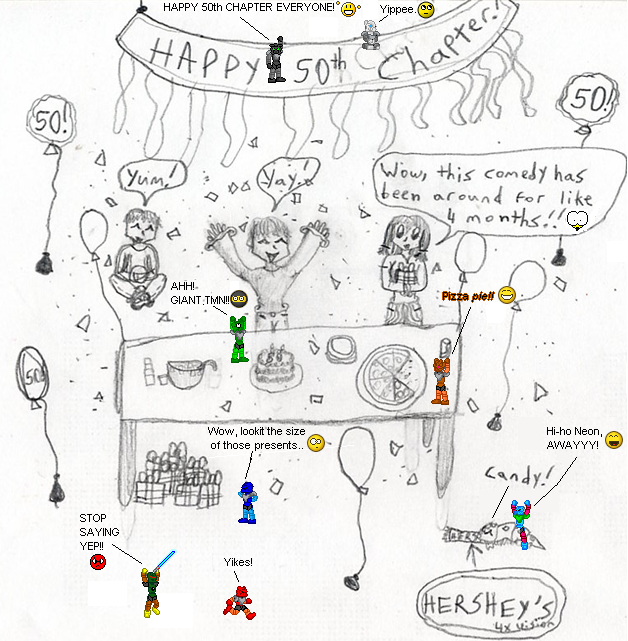 HAPPY 50th CHAPTER EVERYONE!
Yippee.
HAPPY 50th Chapter!
50!
50!
Yum!
Yay!
Wow, this comedy has
been around for like
4 months!!
AHH!
GIANT TMN!!
Pizza pie!!
50!
50
Wow, lookit the size
of those presents..
Hi-ho Neon,
AWAYYY!
Candy!
STOP
SAYING
YEP!!
Yikes!
HERSHEY'S
4x vision